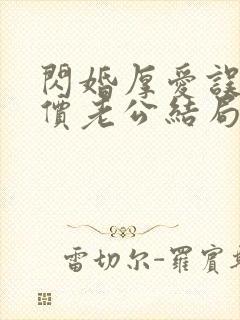 閃婚厚愛誤
價老公結局
雷切尔-羅賓